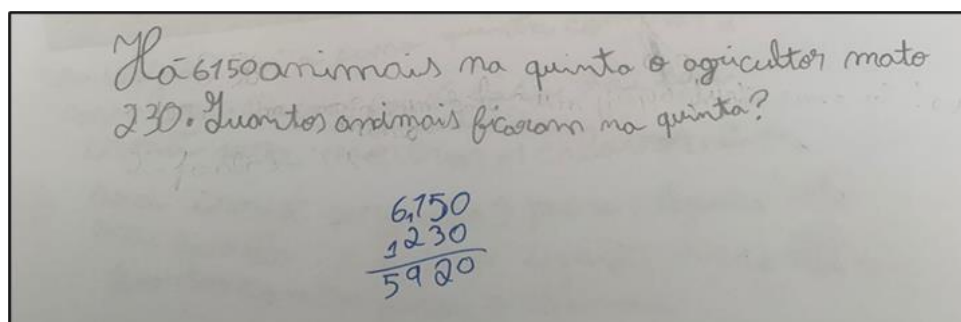 Há 6150 animais na quinta o agricultor mato
230. Quantos animais ficaram na quinta?
6,150
1230
5920